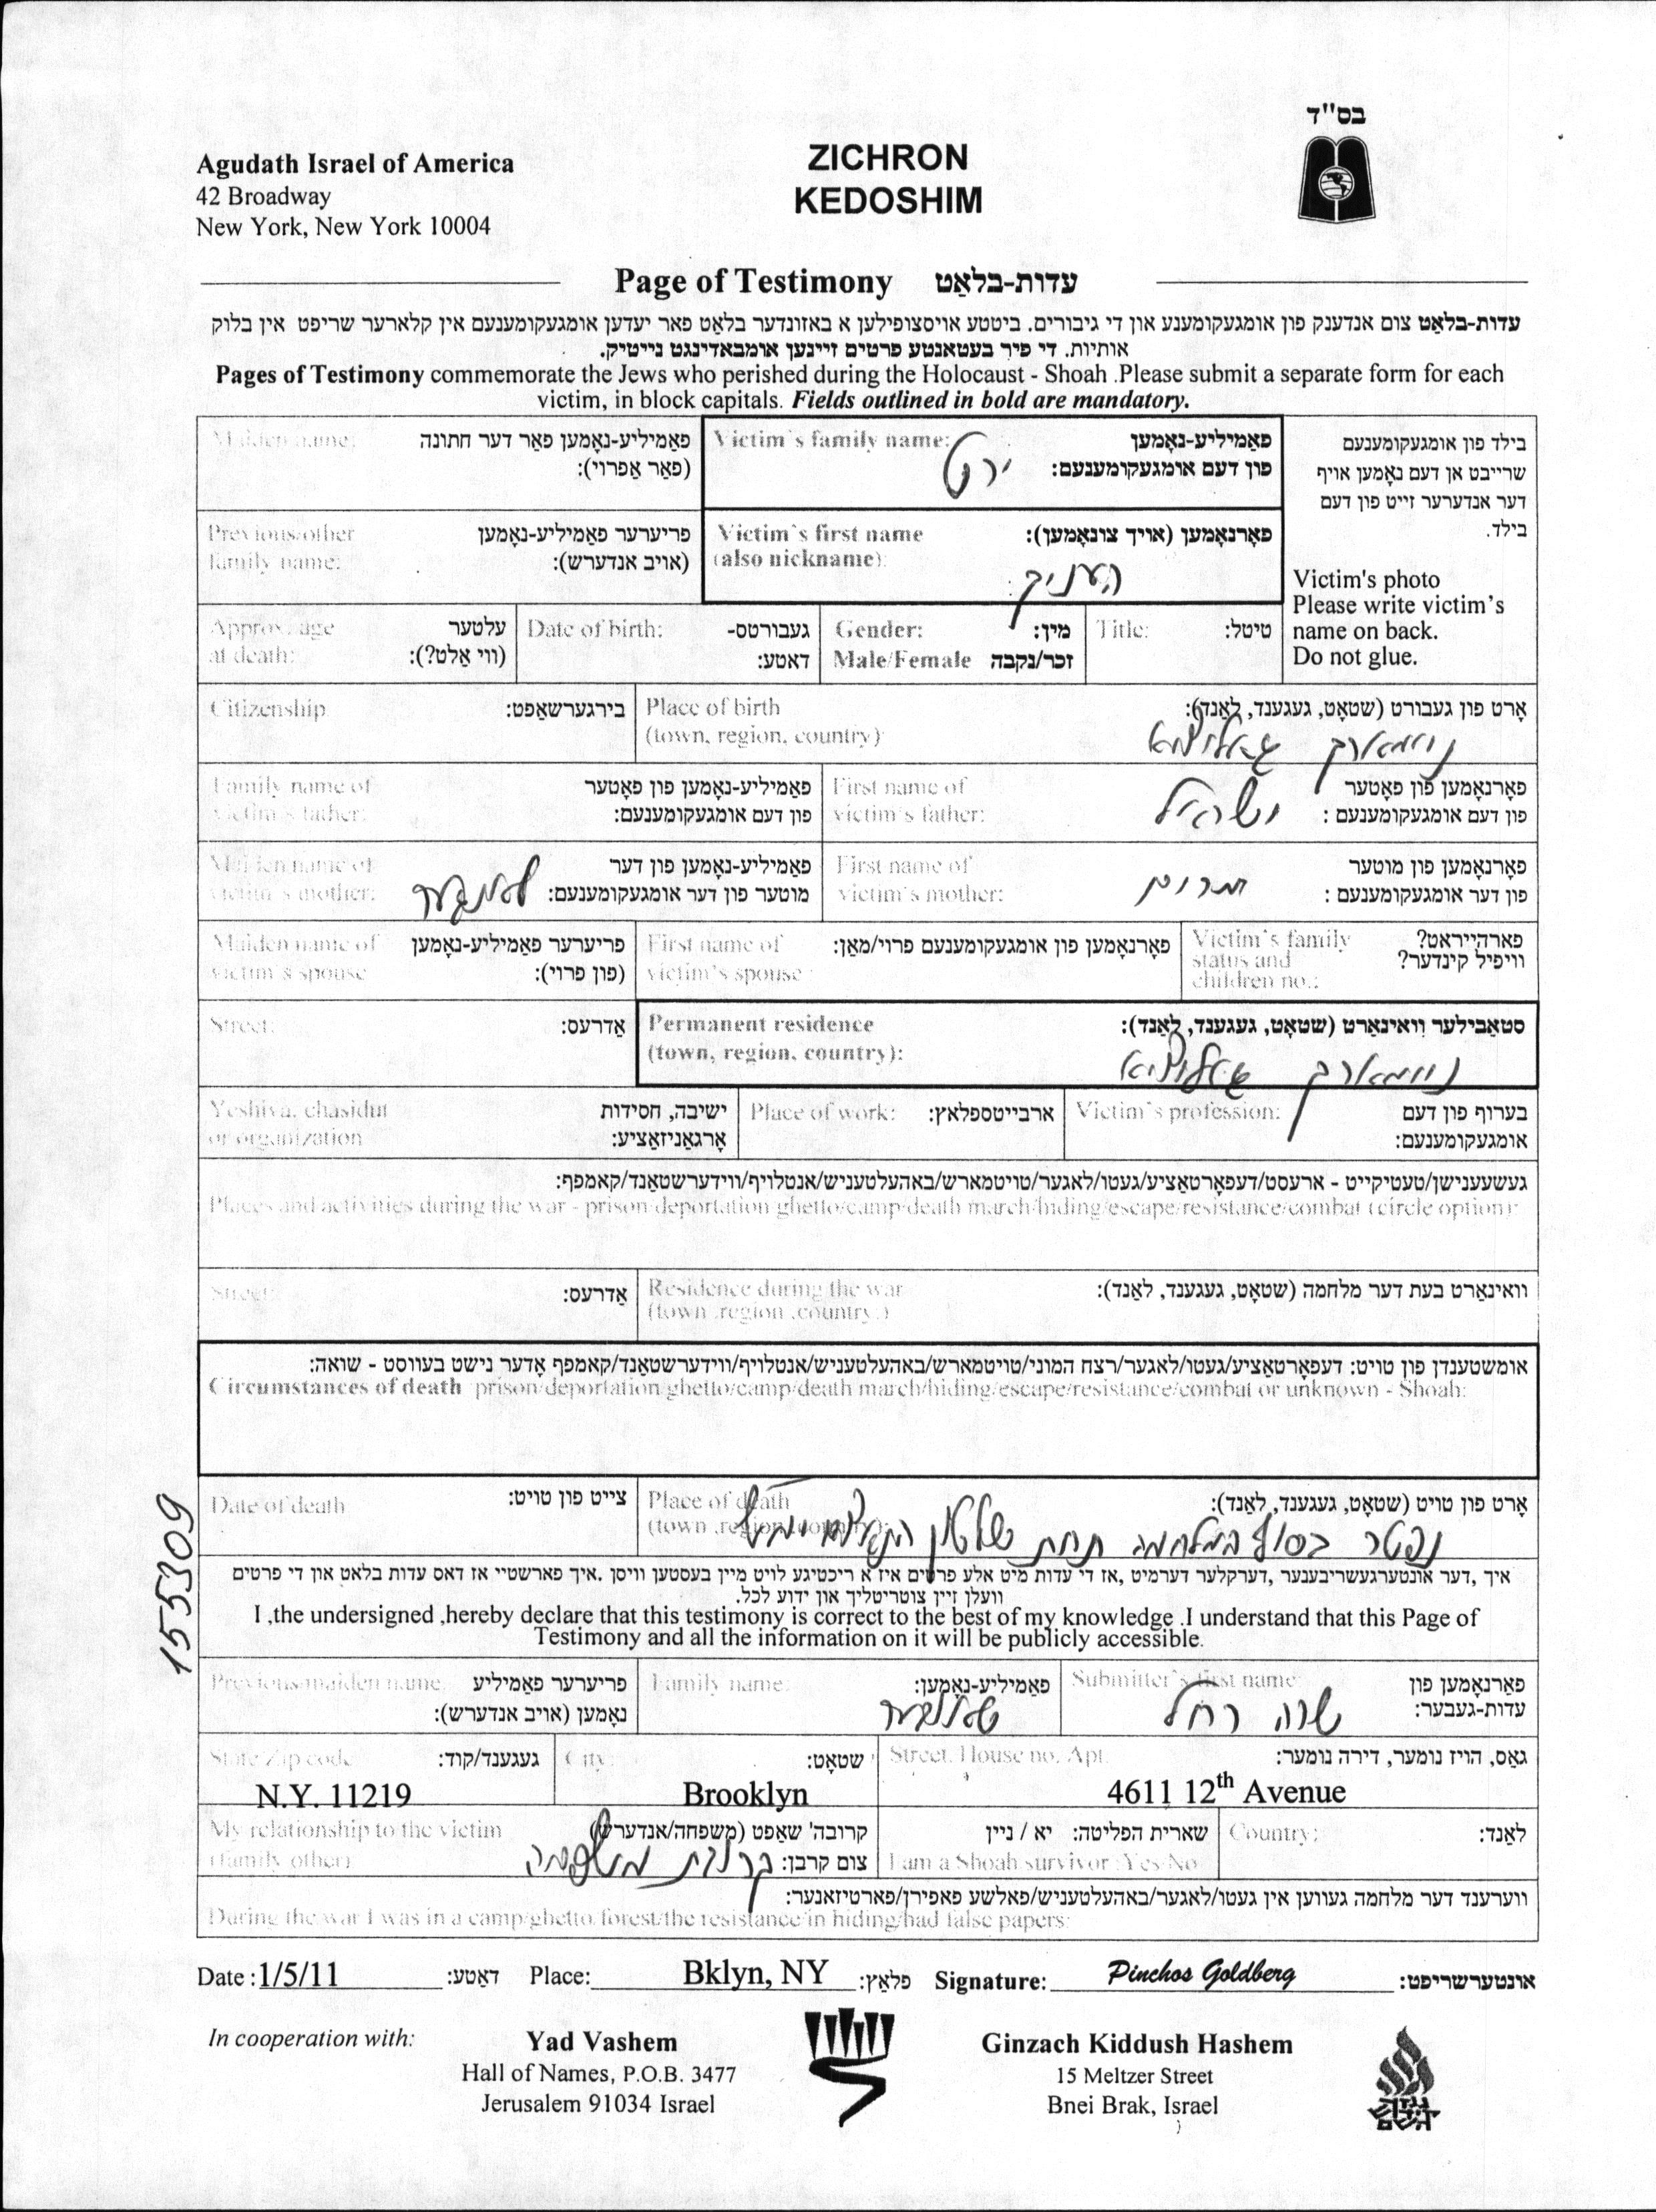 בס"ד
Agudath Israel of America
42 Broadway
New York, New York 10004
ZICHRON
KEDOSHIM
Page of Testimony עדות-בלאַט
עדות-בלאַט צום אנדענק פון אומגעקומענע און די גיבורים. ביטטע אויסצופילען א באזונדער בלאַט פאר יעדען אומגעקומענעם אין קלארער שריפט אין בלוק
אותיות. די פיר בעטאנטע פרטים זיינען אומבאדינגט נייטיק.
Pages of Testimony commemorate the Jews who perished during the Holocaust - Shoah .Please submit a separate form for each
victim, in block capitals. Fields outlined in bold are mandatory.
Maiden name: פאַמיליע-נאָמען פאַר דער חתונה
(פאַר אַפרוי):
Victim's family name: פאַמיליע-נאָמען
פון דעם אומגעקומענעם:
בילד פון אומגעקומענעם
שרייבט אן דעם נאָמען אויף
דער אנדערער זייט פון דעם
בילד.
Previous/other פריערער פאַמיליע-נאָמען
family name: (אויב אנדערש):
Victim's first name פאָרנאָמען (אויך צונאָמען):
(also nickname):
העניך
Victim's photo
Please write victim's
name on back.
Do not glue.
Approx. age עלטער
at death: (ווי אַלט?):
Date of birth: געבורטס-
דאטע:
Gender: מין:
Male/Female זכר/נקבה
Title: טיטל:
Citizenship בירגערשאַפט:
Place of birth אָרט פון געבורט (שטאָט, געגענד, לאַנד):
(town, region, country)
ניימארק גאליציא
Family name of פאַמיליע-נאָמען פון פאָטער
victim's father: פון דעם אומגעקומענעם:
First name of פאָרנאָמען פון פאָטער
victim's father: פון דעם אומגעקומענעם :
ישראל
Maiden name of פאַמיליע-נאָמען פון דער
victim's mother: מוטער פון דער אומגעקומענעם:
First name of פאָרנאָמען פון מוטער
victim's mother: פון דער אומגעקומענעם :
מרים
Maiden name of פריערער פאַמיליע-נאָמען
victim's spouse (פון פרוי):
First name of פאָרנאָמען פון אומגעקומענעם פרוי/מאַן:
victim's spouse :
Victim's family פארהייראט?
status and וויפיל קינדער?
children no.:
Street: אַדרעס:
Permanent residence סטאַבילער וואינאַרט (שטאָט, געגענד, לאַנד):
(town, region, country):
ניימארק גאליציא
Yeshiva, chasidut ישיבה, חסידות
or organization אָרגאַניזאַציע:
Place of work: ארבייטספלאץ:
Victim's profession: בערוף פון דעם
אומגעקומענעם:
געשעענישן/טעטיקייט - ארעסט/דעפּאָרטאַציע/געטו/לאגער/טויטמארש/באהעלטעניש/אנטלויף/ווידערשטאַנד/קאמפף:
Places and activities during the war - prison/deportation/ghetto/camp/death march/hiding/escape/resistance/combat (circle option):
Street: אַדרעס:
Residence during the war וואינאַרט בעת דער מלחמה (שטאָט, געגענד, לאַנד):
(town ,region ,country.)
אומשטענדן פון טויט: דעפּאָרטאַציע/געטו/לאגער/רצח המוני/טויטמארש/באהעלטעניש/אנטלויף/ווידערשטאַנד/קאמפף אָדער נישט בעווסט - שואה:
Circumstances of death prison/deportation/ghetto/camp/death march/hiding/escape/resistance/combat or unknown - Shoah:
155309
Date of death צייט פון טויט:
Place of death אָרט פון טויט (שטאָט, געגענד, לאַנד):
(town ,region ,country):
נפטר בסוף המלחמה תחת שלטון
איך ,דער אונטערגעשריבענער ,דערקלער דערמיט ,אז די עדות מיט אלע פרטים איז א ריכטיגע לויט מיין בעסטען וויסן .איך פארשטיי אז דאס עדות בלאט און די פרטים
וועלן זיין צוטריטליך און ידוע לכל.
I ,the undersigned ,hereby declare that this testimony is correct to the best of my knowledge .I understand that this Page of
Testimony and all the information on it will be publicly accessible.
Previous/maiden name: פריערער פאַמיליע
נאָמען (אויב אנדערש):
Family name: פאַמיליע-נאָמען:
Submitter's first name: פאָרנאָמען פון
עדות-געבער:
שרה רחל
State Zip code געגענד/קוד:
City: שטאָט:
Street, House no. Apt. גאַס, הויז נומער, דירה נומער:
N.Y. 11219
Brooklyn
4611 12th Avenue
My relationship to the victim קרובה' שאַפט (משפּחה/אנדערש)
(family/other) צום קרבן:
קרובת משפחה
שארית הפליטה: יא / ניין
I am a Shoah survivor :Yes/No
Country: לאַנד:
ווערענד דער מלחמה געווען אין געטו/לאגער/באהעלטעניש/פאלשע פאפירן/פארטיזאנער:
During the war I was in a camp/ghetto/forest/the resistance/in hiding/had false papers:
Date : 1/5/11 דאַטע: Place: Bklyn, NY פּלאַץ: Signature: Pinchos Goldberg אונטערשריפט:
In cooperation with:
Yad Vashem
Hall of Names, P.O.B. 3477
Jerusalem 91034 Israel
Ginzach Kiddush Hashem
15 Meltzer Street
Bnei Brak, Israel